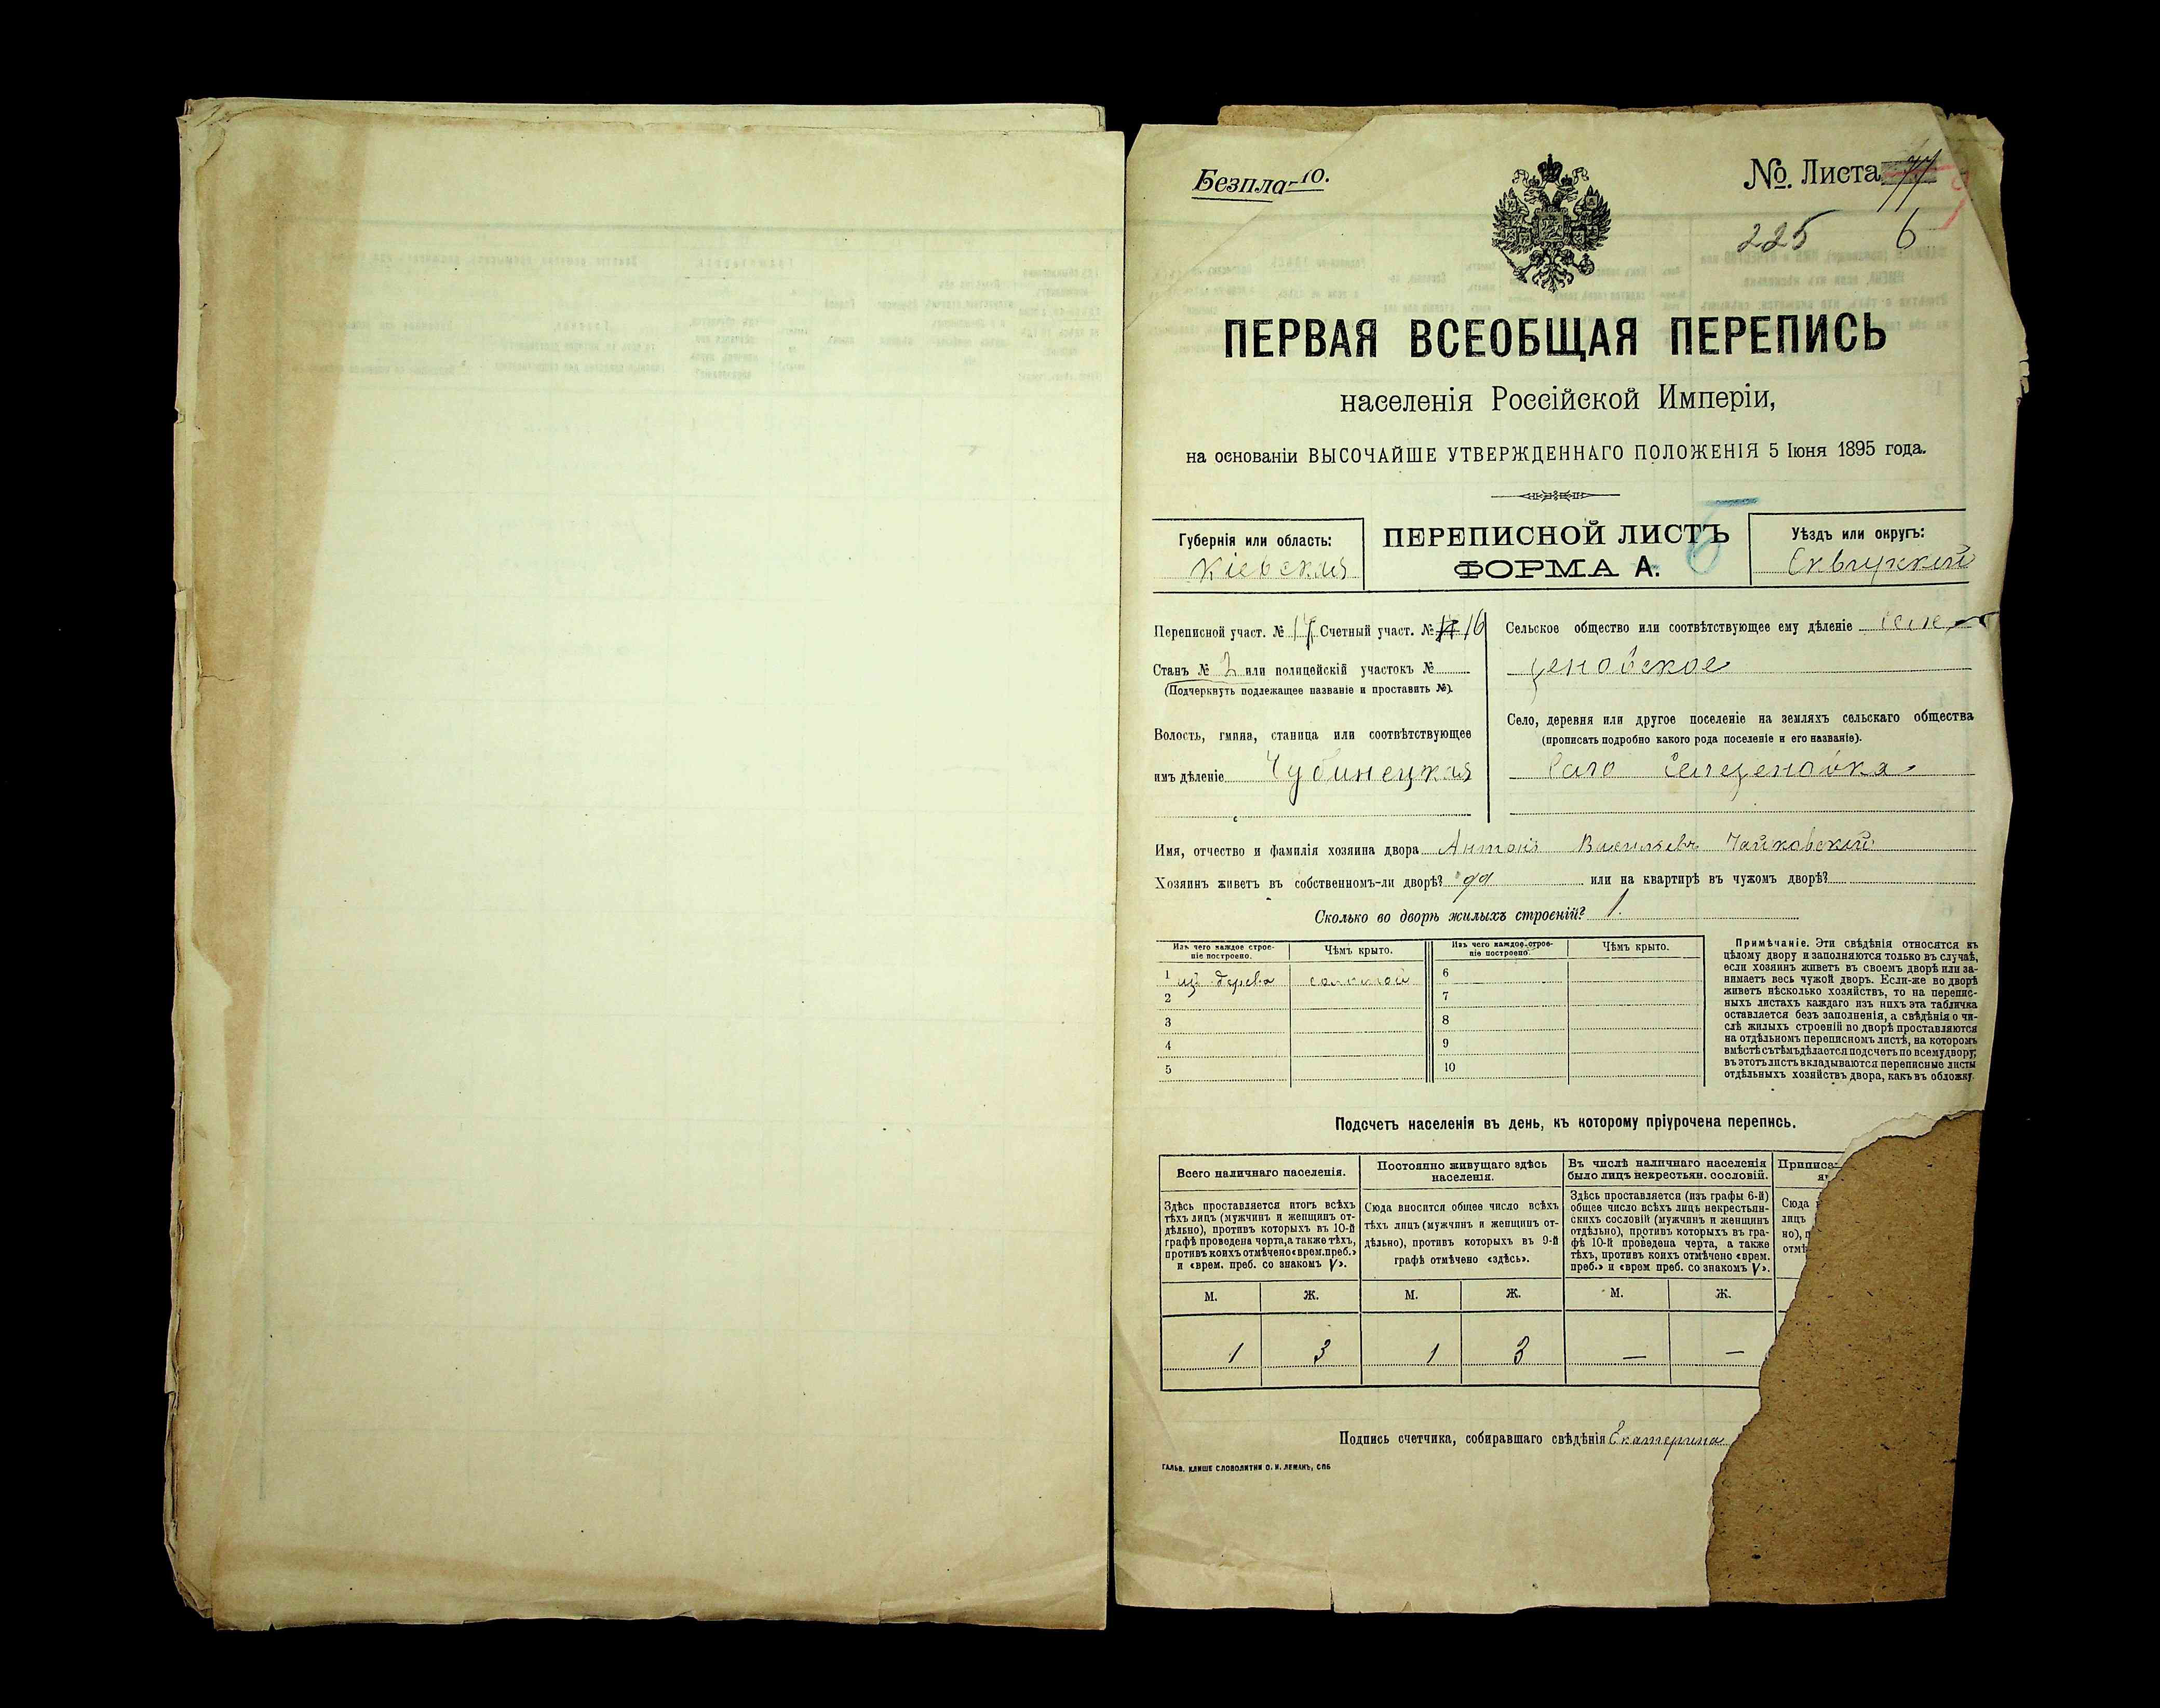 Безпла-10.
No. Листа 77
225 6
ПЕРВАЯ ВСЕОБЩАЯ ПЕРЕПИСЬ
населенія Россійской Имперіи,
на основаніи ВЫСОЧАЙШЕ УТВЕРЖДЕННАГО ПОЛОЖЕНІЯ 5 Іюня 1895 года.
Губернія или область:
Кіевская
ПЕРЕПИСНОЙ ЛИСТЪ
ФОРМА А.
Уѣздъ или округъ:
Сквирскій
Переписной участ. № 17 Счетный участ. № 16
Станъ № 2 или полицейскій участокъ №
(Подчеркнуть подлежащее названіе и проставить №).
Волость, гмина, станица или соотвѣтствующее
имъ дѣленіе Чубинецкая
Сельское общество или соотвѣтствующее ему дѣленіе
Село, деревня или другое поселеніе на земляхъ сельскаго общества
(прописать подробно какого рода поселеніе и его названіе).
Село
Имя, отчество и фамилія хозяина двора Антонъ Васильевъ Чайковскій
Хозяинъ живетъ въ собственномъ-ли дворѣ? да или на квартирѣ въ чужомъ дворѣ?
Сколько во дворѣ жилыхъ строеній? 1.
Изъ чего каждое строе-
ніе построено.
Чѣмъ крыто.
Изъ чего каждое строе-
ніе построено.
Чѣмъ крыто.
1 изъ дерева соломой 6
2 7
3 8
4 9
5 10
Примѣчаніе. Эти свѣдѣнія относятся къ
цѣлому двору и заполняются только въ случаѣ,
если хозяинъ живетъ въ своемъ дворѣ или за-
нимаетъ весь чужой дворъ. Если-же во дворѣ
живетъ нѣсколько хозяйствъ, то на перепис-
ныхъ листахъ каждаго изъ нихъ эта табличка
оставляется безъ заполненія, а свѣдѣнія о чи-
слѣ жилыхъ строеній во дворѣ проставляются
на отдѣльномъ переписномъ листѣ, на которомъ
вмѣстѣ съ тѣмъ дѣлается подсчетъ по всему двору;
въ этотъ листъ вкладываются переписные листы
отдѣльныхъ хозяйствъ двора, какъ въ обложку.
Подсчетъ населенія въ день, къ которому пріурочена перепись.
Всего наличнаго населенія.
Здѣсь проставляется итогъ всѣхъ
тѣхъ лицъ (мужчинъ и женщинъ от-
дѣльно), противъ которыхъ въ 10-й
графѣ проведена черта, а также тѣхъ,
противъ коихъ отмѣчено «врем. преб.»
и «врем. преб. со знакомъ V».
Постоянно живущаго здѣсь
населенія.
Сюда вносится общее число всѣхъ
тѣхъ лицъ (мужчинъ и женщинъ от-
дѣльно), противъ которыхъ въ 9-й
графѣ отмѣчено «здѣсь».
Въ числѣ наличнаго населенія
было лицъ некрестьян. сословій.
Здѣсь проставляется (изъ графы 6-й)
общее число всѣхъ лицъ некрестьян-
скихъ сословій (мужчинъ и женщинъ
отдѣльно), противъ которыхъ въ гра-
фѣ 10-й проведена черта, а также
тѣхъ, противъ коихъ отмѣчено «врем.
преб.» и «врем преб. со знакомъ V».
Приписа-
Сюда
лицъ
но), п
отмѣ
М. Ж. М. Ж. М. Ж.
1 3 1 3 — —
Подпись счетчика, собиравшаго свѣдѣнія Екатерина
ГАЛЬВ. КЛИШЕ СЛОВОЛИТНИ О. И. ЛЕМАНЪ, СПБ